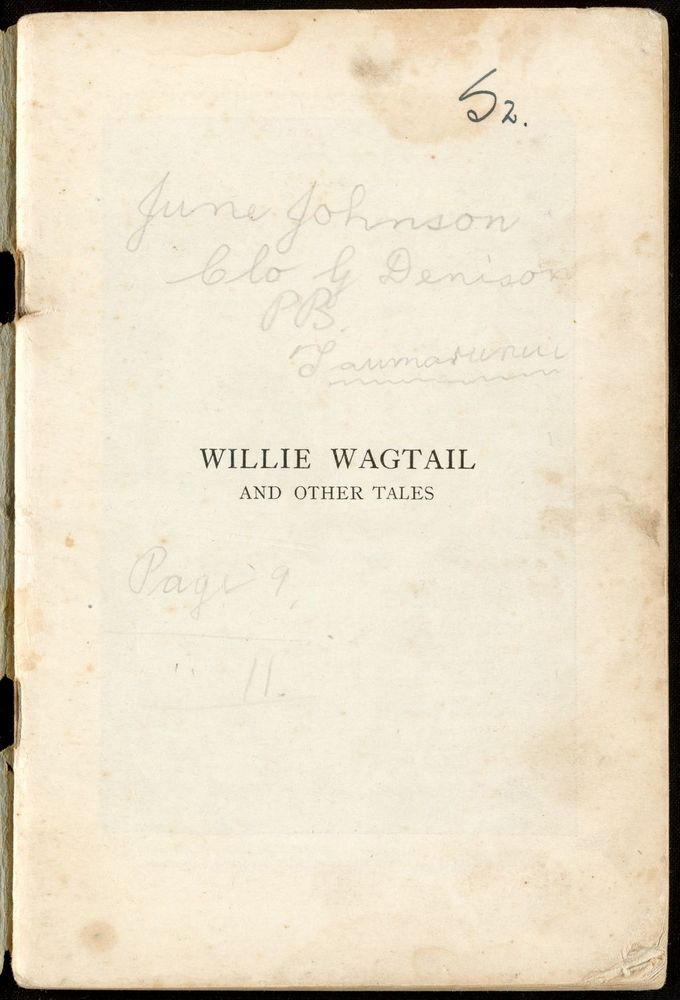 52.
June Johnson
C/o G Denison
P.B.
Taumarunui
WILLIE WAGTAIL
AND OTHER TALES
Page 9,
" 11.